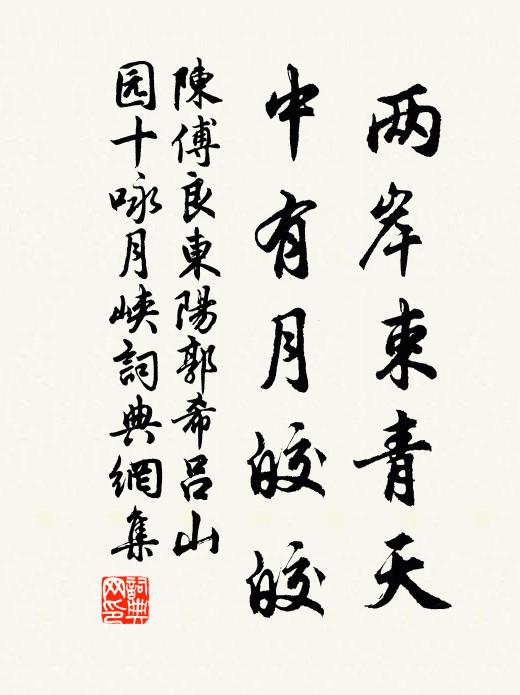 两岸束青天
中有月皎皎
陳傅良東陽郭希呂山
园十咏月峡詞典網集
詞典網印